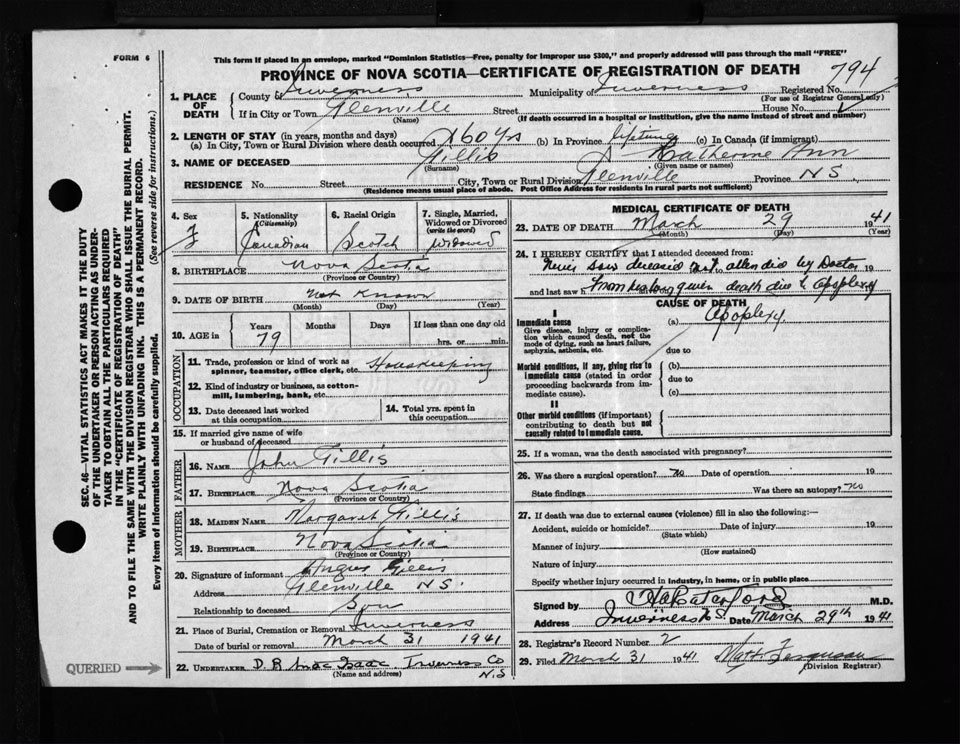 FORM 6
This form if placed in an envelope, marked "Dominion Statistics—Free, penalty for improper use $300," and properly addressed will pass through the mail "FREE"
PROVINCE OF NOVA SCOTIA—CERTIFICATE OF REGISTRATION OF DEATH 794
1. PLACE OF DEATH County of Inverness Municipality of Inverness Registered No.
(For use of Registrar General only)
If in City or Town Glenville Street House No.
(Name) (If death occurred in a hospital or institution, give the name instead of street and number)
2. LENGTH OF STAY (in years, months and days)
(a) In City, Town or Rural Division where death occurred 60 yrs (b) In Province lifetime (c) In Canada (if immigrant)
3. NAME OF DECEASED Gillis Katherine Ann
(Surname) (Given name or names)
RESIDENCE No. Street City, Town or Rural Division Glenville Province N S.
(Residence means usual place of abode. Post Office Address for residents in rural parts not sufficient)
4. Sex F
5. Nationality (Citizenship) Canadian
6. Racial Origin Scotch
7. Single, Married, Widowed or Divorced (write the word) Widowed
8. BIRTHPLACE Nova Scotia
(Province or Country)
9. DATE OF BIRTH Not Known
(Month) (Day) (Year)
10. AGE in Years 79 Months Days If less than one day old
hrs. or min.
OCCUPATION
11. Trade, profession or kind of work as spinner, teamster, office clerk, etc. Housekeeping
12. Kind of industry or business, as cotton-mill, lumbering, bank, etc.
13. Date deceased last worked at this occupation
14. Total yrs. spent in this occupation
15. If married give name of wife or husband of deceased
FATHER
16. NAME John Gillis
17. BIRTHPLACE Nova Scotia
(Province or Country)
MOTHER
18. MAIDEN NAME Margaret Gillis
19. BIRTHPLACE Nova Scotia
(Province or Country)
20. Signature of informant Angus Gillis
Address Glenville N S.
Relationship to deceased Son
21. Place of Burial, Cremation or Removal Inverness
Date of burial or removal March 31 1941
22. UNDERTAKER D. R. MacIsaac Inverness Co
N.S
(Name and address)
MEDICAL CERTIFICATE OF DEATH
23. DATE OF DEATH March 29 1941
(Month) (Day) (Year)
24. I HEREBY CERTIFY that I attended deceased from:
Never saw deceased not attended by Doctor 19
and last saw h From history given death due to Apoplexy
CAUSE OF DEATH
I
Immediate cause
Give disease, injury or complication which caused death, not the mode of dying, such as heart failure, asphyxia, asthenia, etc.
(a) Apoplexy
due to
Morbid conditions, if any, giving rise to immediate cause (stated in order proceeding backwards from immediate cause).
(b)
due to
(c)
II
Other morbid conditions (if important) contributing to death but not causally related to immediate cause.
25. If a woman, was the death associated with pregnancy?
26. Was there a surgical operation? No Date of operation 19
State findings Was there an autopsy? No
27. If death was due to external causes (violence) fill in also the following:—
Accident, suicide or homicide? Date of injury 19
(State which)
Manner of injury
(How sustained)
Nature of injury
Specify whether injury occurred in industry, in home, or in public place
Signed by M.D.
Address Inverness N.S. Date March 29th 1941
28. Registrar's Record Number 2
29. Filed March 31 1941 Ferguson
(Division Registrar)
SEC. 46—VITAL STATISTICS ACT MAKES IT THE DUTY
OF THE UNDERTAKER OR PERSON ACTING AS UNDER-
TAKER TO OBTAIN ALL THE PARTICULARS REQUIRED
IN THE "CERTIFICATE OF REGISTRATION OF DEATH"
AND TO FILE THE SAME WITH THE DIVISION REGISTRAR WHO SHALL ISSUE THE BURIAL PERMIT.
WRITE PLAINLY WITH UNFADING INK. THIS IS A PERMANENT RECORD.
Every item of information should be carefully supplied. (See reverse side for instructions.)
QUERIED